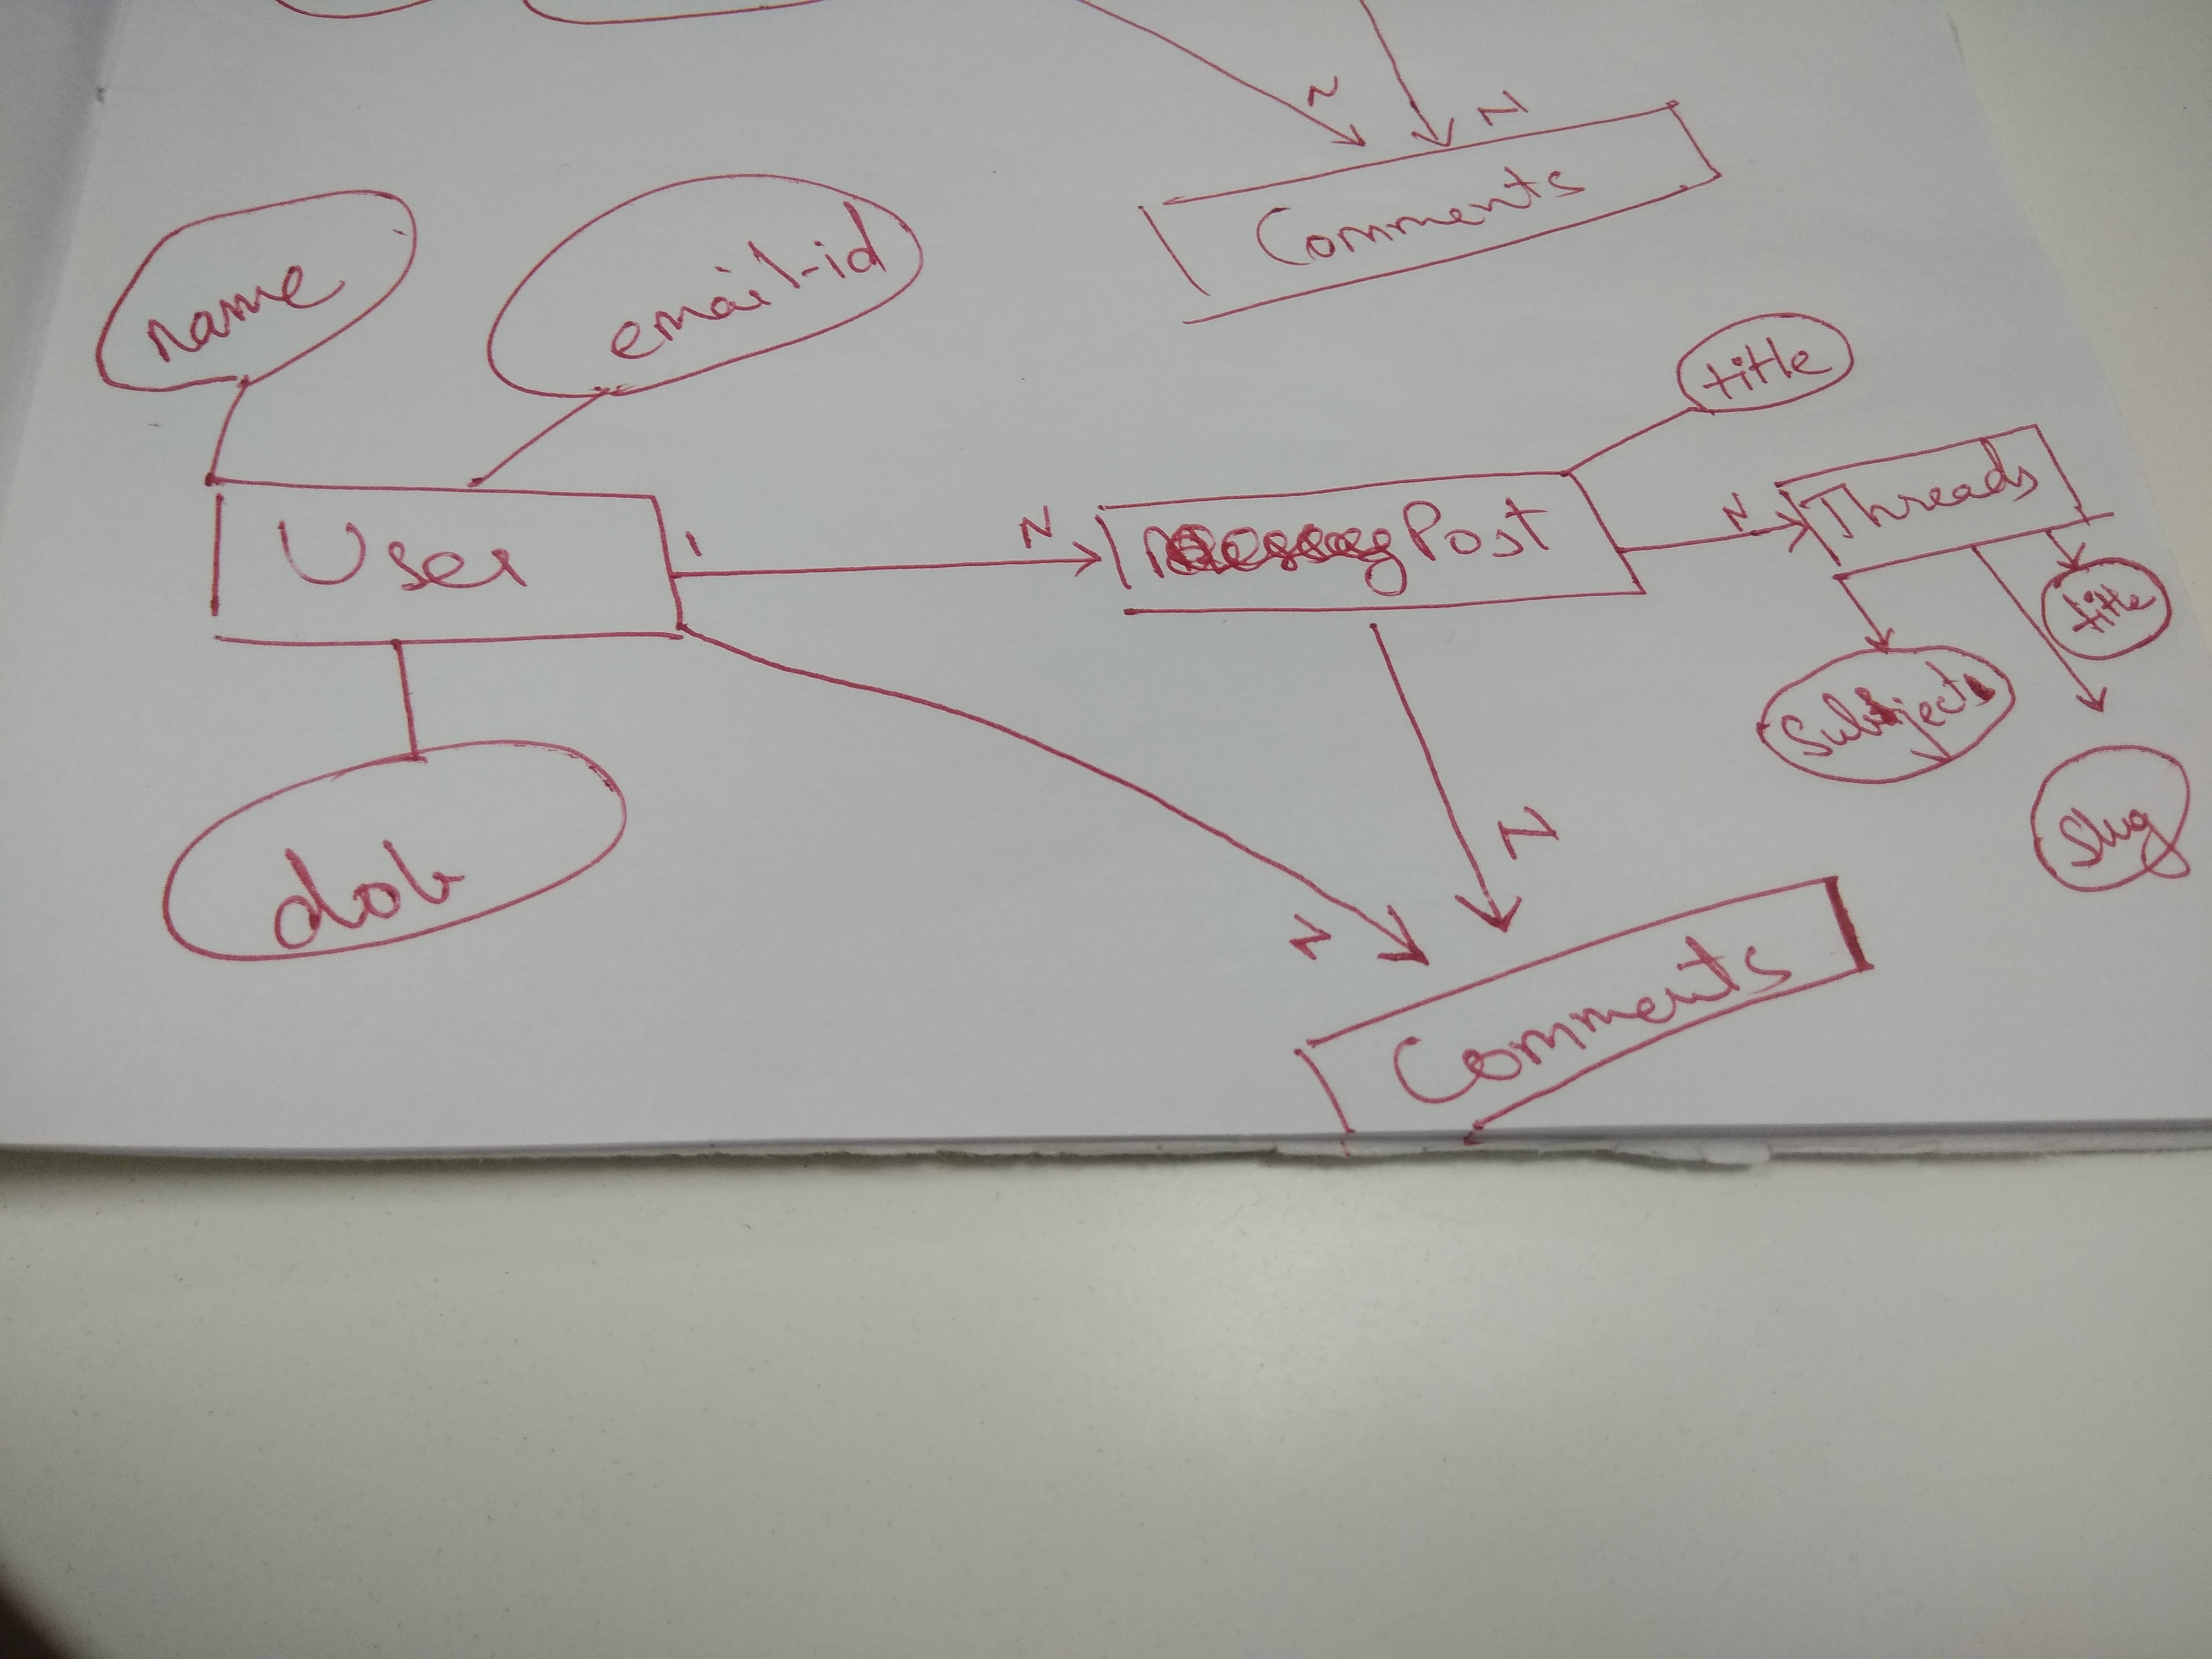 N
N
Comments
name
email-id
title
User
1
N
Post
N
Threads
title
Subjects
slug
dob
N
N
Comments